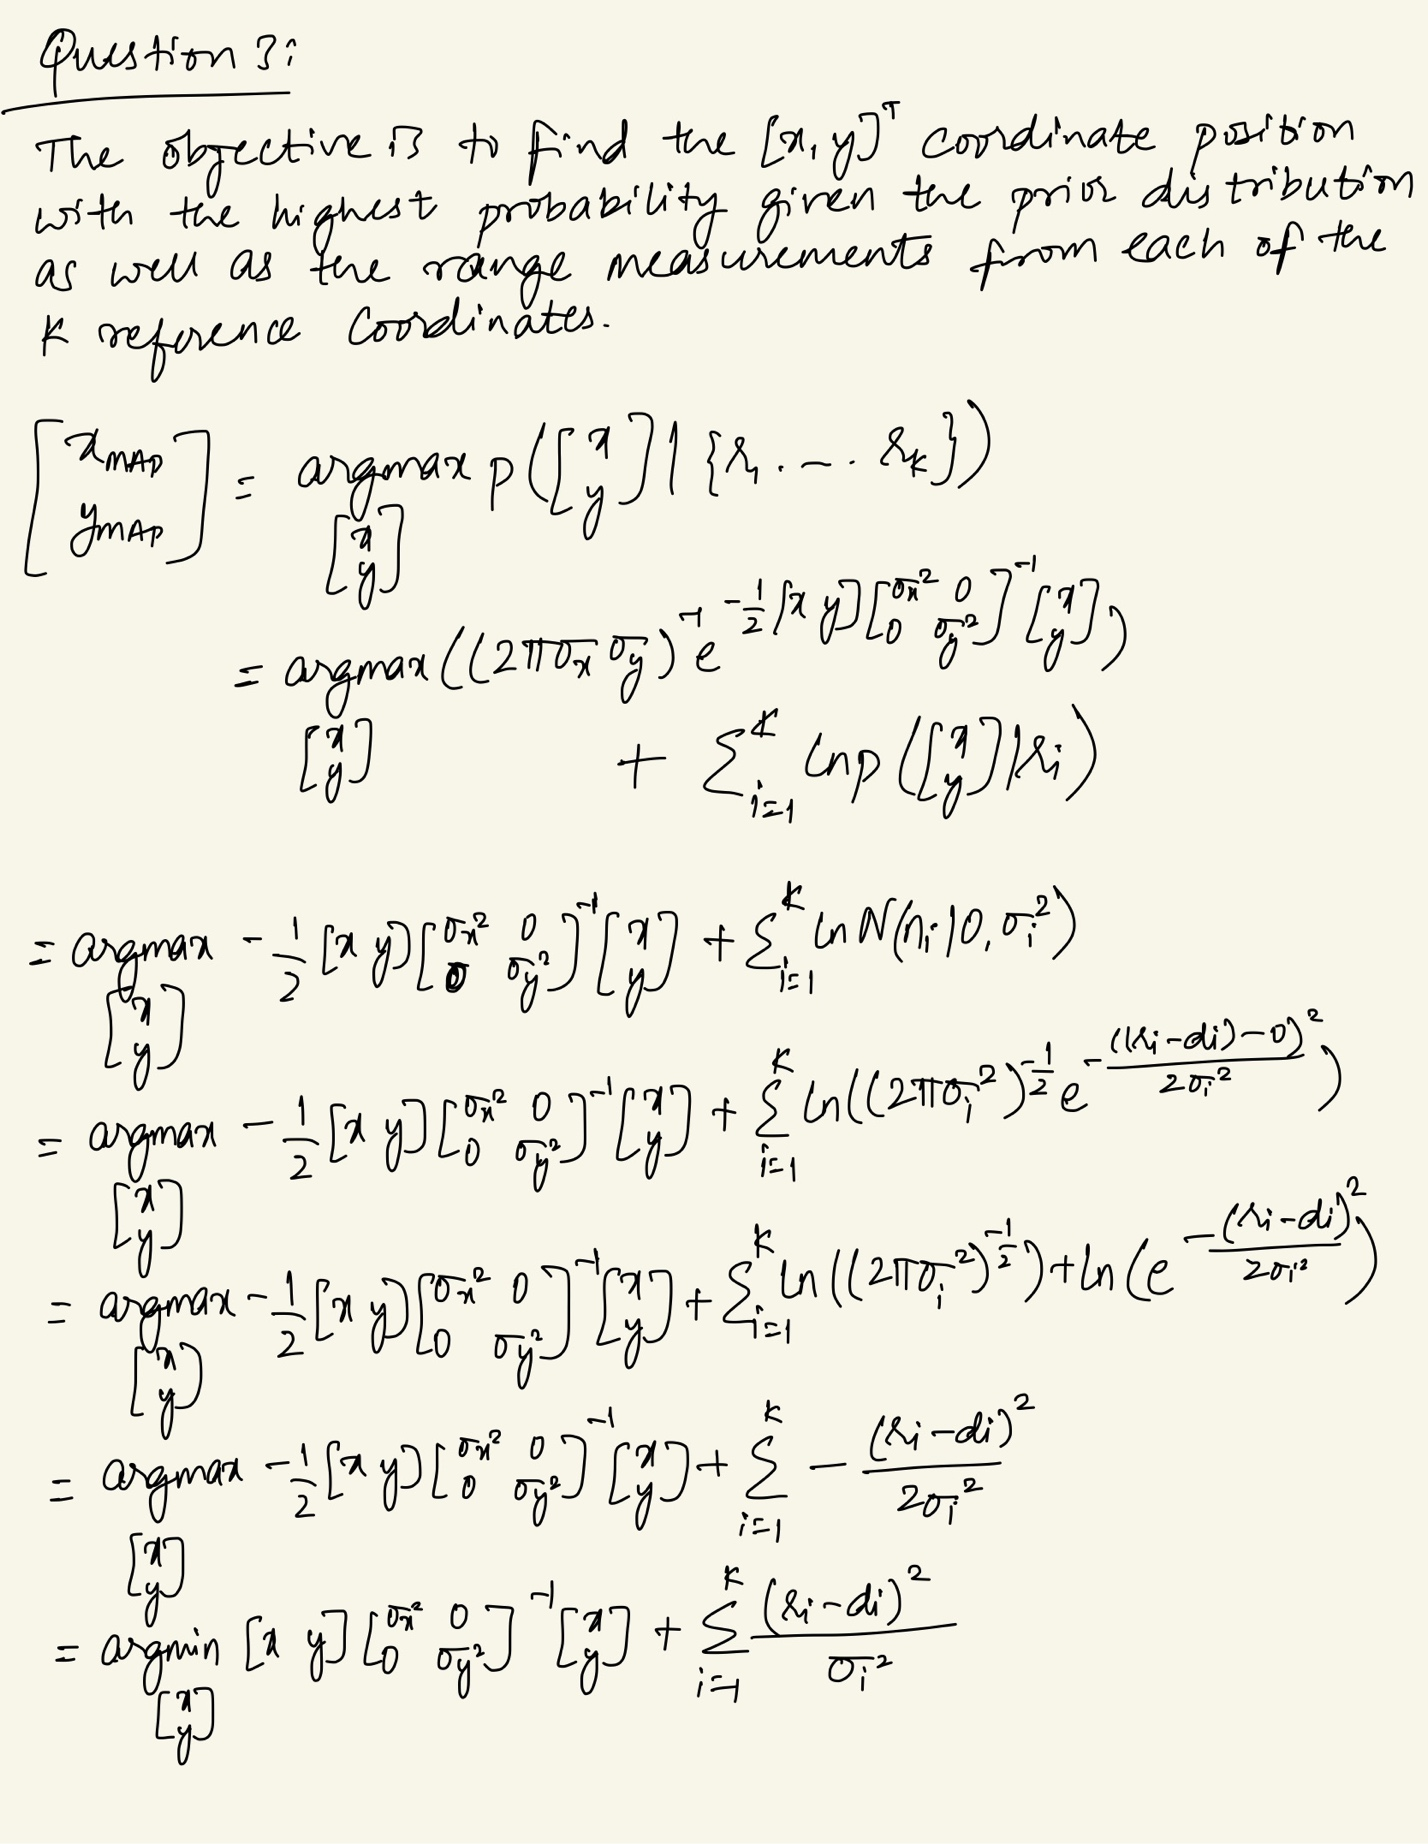 Question 3:
The objective is to find the [x, y]^T coordinate position
with the highest probability given the prior distribution
as well as the range measurements from each of the
K reference coordinates.
[x_MAP; y_MAP] = argmax_{[x; y]} p([x; y] | {r_1 . -- . r_K})
= argmax_{[x; y]} ((2πσ_x σ_y)^{-1} e^{-1/2 [x y] [σ_x^2 0; 0 σ_y^2]^{-1} [x; y]})
+ Σ_{i=1}^{K} ln p([x; y] | r_i)
= argmax_{[x; y]} -1/2 [x y] [σ_x^2 0; 0 σ_y^2]^{-1} [x; y] + Σ_{i=1}^{K} ln N(n_i | 0, σ_i^2)
= argmax_{[x; y]} -1/2 [x y] [σ_x^2 0; 0 σ_y^2]^{-1} [x; y] + Σ_{i=1}^{K} ln((2πσ_i^2)^{-1/2} e^{-((r_i-d_i)-0)^2 / 2σ_i^2})
= argmax_{[x; y]} -1/2 [x y] [σ_x^2 0; 0 σ_y^2]^{-1} [x; y] + Σ_{i=1}^{K} ln((2πσ_i^2)^{-1/2}) + ln(e^{-(r_i-d_i)^2 / 2σ_i^2})
= argmax_{[x; y]} -1/2 [x y] [σ_x^2 0; 0 σ_y^2]^{-1} [x; y] + Σ_{i=1}^{K} - (r_i-d_i)^2 / 2σ_i^2
= argmin_{[x; y]} [x y] [σ_x^2 0; 0 σ_y^2]^{-1} [x; y] + Σ_{i=1}^{K} (r_i-d_i)^2 / σ_i^2